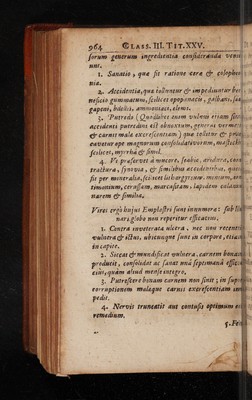 964 CLASS. III. TIT. XXV.
sorum generum ingredientia consideranda veni-
unt.
1. Sanatio, quæ fit ratione ceræ & colopho-
niæ.
2. Accidentia, quæ tolluntur & impediuntur be-
neficio gummatum, scilicet opopanacis, galbani,
gapeni, bdellii, ammoniaci, elemi.
3. Putredo (Quodlibet enim vulnus etiam sine
accidenti putredini est obnoxium, generat vermes
& carnis malæ excrescentiam) quæ tollitur &
cavetur ope magnarum consolidativorum, mastiches
scilicet, myrrhæ &
4. Ut præservet à mucore, scabie, ariditate,
teachura, synovia, & similibus accidentibus, quæ
fit per mineralia, scilicet lithargyrium, minium, an-
timonium, cerussam, marcasitam, lapidem calami-
narem & similia.
Vires ergò hujus Emplastri sunt innumeræ: sub
nari globo non reperitur efficacius.
1. Contra inveterata ulcera, nec non recentia
vulnera & illius, ubicunque sunt in corpore, etiam
in capite.
2. Siccat & mundificat vulnera, carnem bonam
producit, consolidat ac sanat unâ septimanâ effica-
cius, quàm aliud mense integro.
3. Putrescere bonam carnem non sinit; in super
corruptionem malæque carnis excrescentiam im-
pedit.
4. Nervis truncatis aut contusis optimum
remedium.